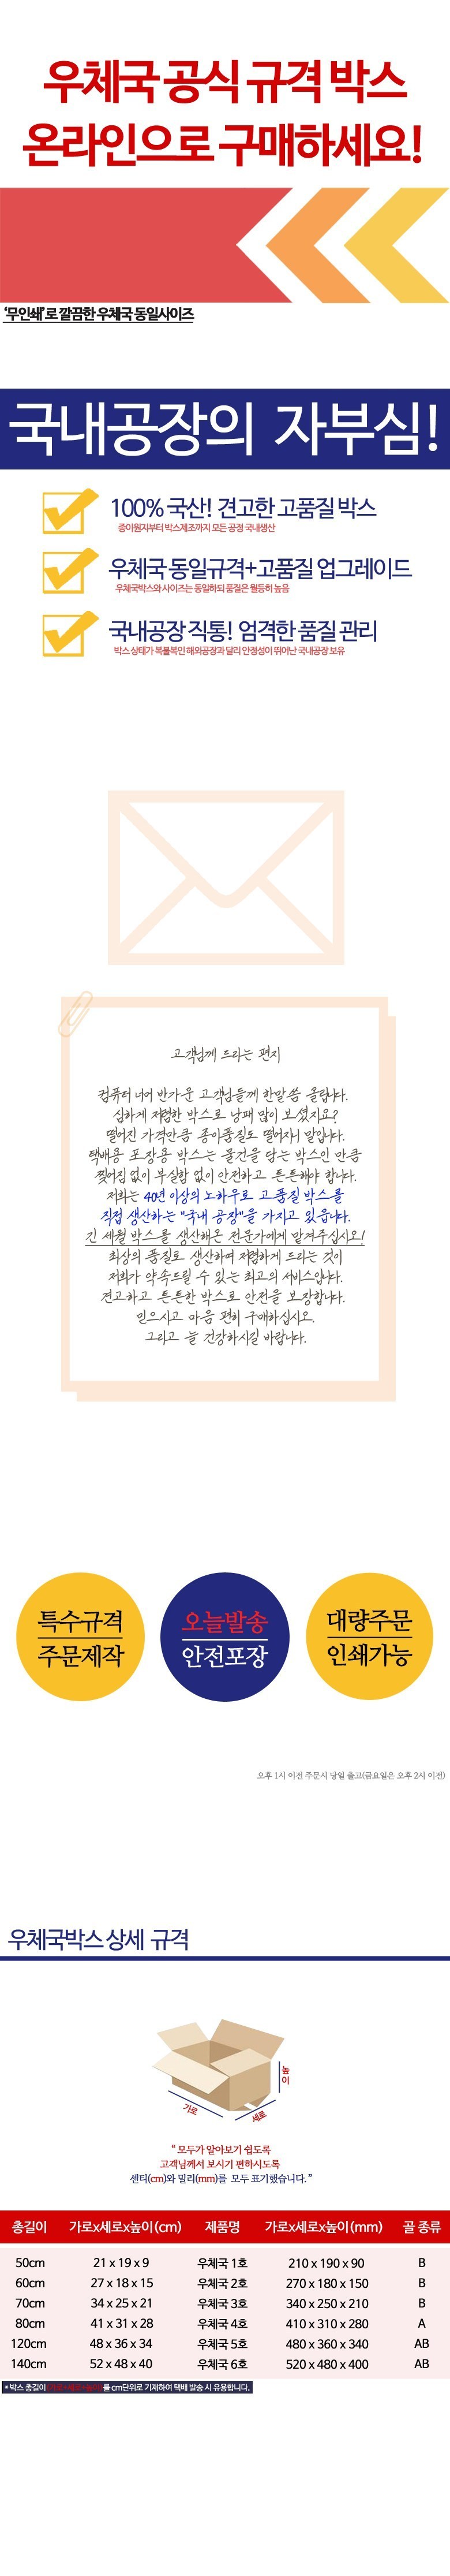 우체국 공식 규격 박스
온라인으로 구매하세요!
‘무인쇄’로 깔끔한 우체국 동일사이즈
국내공장의 자부심!
100% 국산! 견고한 고품질 박스
종이원지부터 박스제조까지 모든 공정 국내생산
우체국 동일규격+고품질 업그레이드
우체국박스와 사이즈는 동일하되 품질은 월등히 높음
국내공장 직통! 엄격한 품질 관리
박스 상태가 복불복인 해외공장과 달리 안정성이 뛰어난 국내공장 보유
고객님께 드리는 편지
컴퓨터 너머 반가운 고객님들께 한말씀 올립니다.
심하게 저렴한 박스로 낭패 많이 보셨지요?
떨어진 가격만큼 종이품질도 떨어지기 말입니다.
택배용 포장용 박스는 물건을 담는 박스인 만큼
찢어짐 없이 부실함 없이 안전하고 튼튼해야 합니다.
저희는 40년 이상의 노하우로 고품질 박스를
직접 생산하는 "국내 공장"을 가지고 있습니다.
긴 세월 박스를 생산해온 전문가에게 맡겨주십시오!
최상의 품질로 생산하여 저렴하게 드리는 것이
저희가 약속드릴 수 있는 최고의 서비스입니다.
견고하고 튼튼한 박스로 안전을 보장합니다.
믿으시고 마음 편히 구매하십시오.
그리고 늘 건강하시길 바랍니다.
특수규격
주문제작
오늘발송
안전포장
대량주문
인쇄가능
오후 1시 이전 주문시 당일 출고(금요일은 오후 2시 이전)
우체국박스 상세 규격
높이
가로
세로
“ 모두가 알아보기 쉽도록
고객님께서 보시기 편하시도록
센티(cm)와 밀리(mm)를 모두 표기했습니다. ”
총길이 가로x세로x높이(cm) 제품명 가로x세로x높이(mm) 골 종류
50cm 21 x 19 x 9 우체국 1호 210 x 190 x 90 B
60cm 27 x 18 x 15 우체국 2호 270 x 180 x 150 B
70cm 34 x 25 x 21 우체국 3호 340 x 250 x 210 B
80cm 41 x 31 x 28 우체국 4호 410 x 310 x 280 A
120cm 48 x 36 x 34 우체국 5호 480 x 360 x 340 AB
140cm 52 x 48 x 40 우체국 6호 520 x 480 x 400 AB
* 박스 총길이(가로+세로+높이)를 cm단위로 기재하여 택배 발송 시 유용합니다.